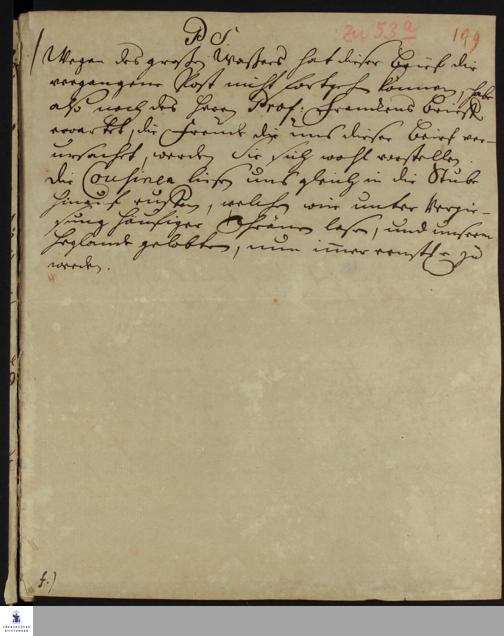 PS.
zu 53a
199
Wegen des großen Waßers hat dieser Brief die
vergangene Post nicht fortgehen können, habe
also noch des Herrn Prof: Franckens Brief
erwartet, die Freude die uns dieser Brief ver-
ursachet, werden Sie sich wohl vorstellen.
Die Cousinen ließen uns gleich in die Stube
hinauf ruffen, welchen wir unter Vergie-
ßung häufiger Thränen lasen, und unserm
Heylande gelobten, nun immer ernster zu
werden.
f.)
FRANCKESCHE
STIFTUNGEN